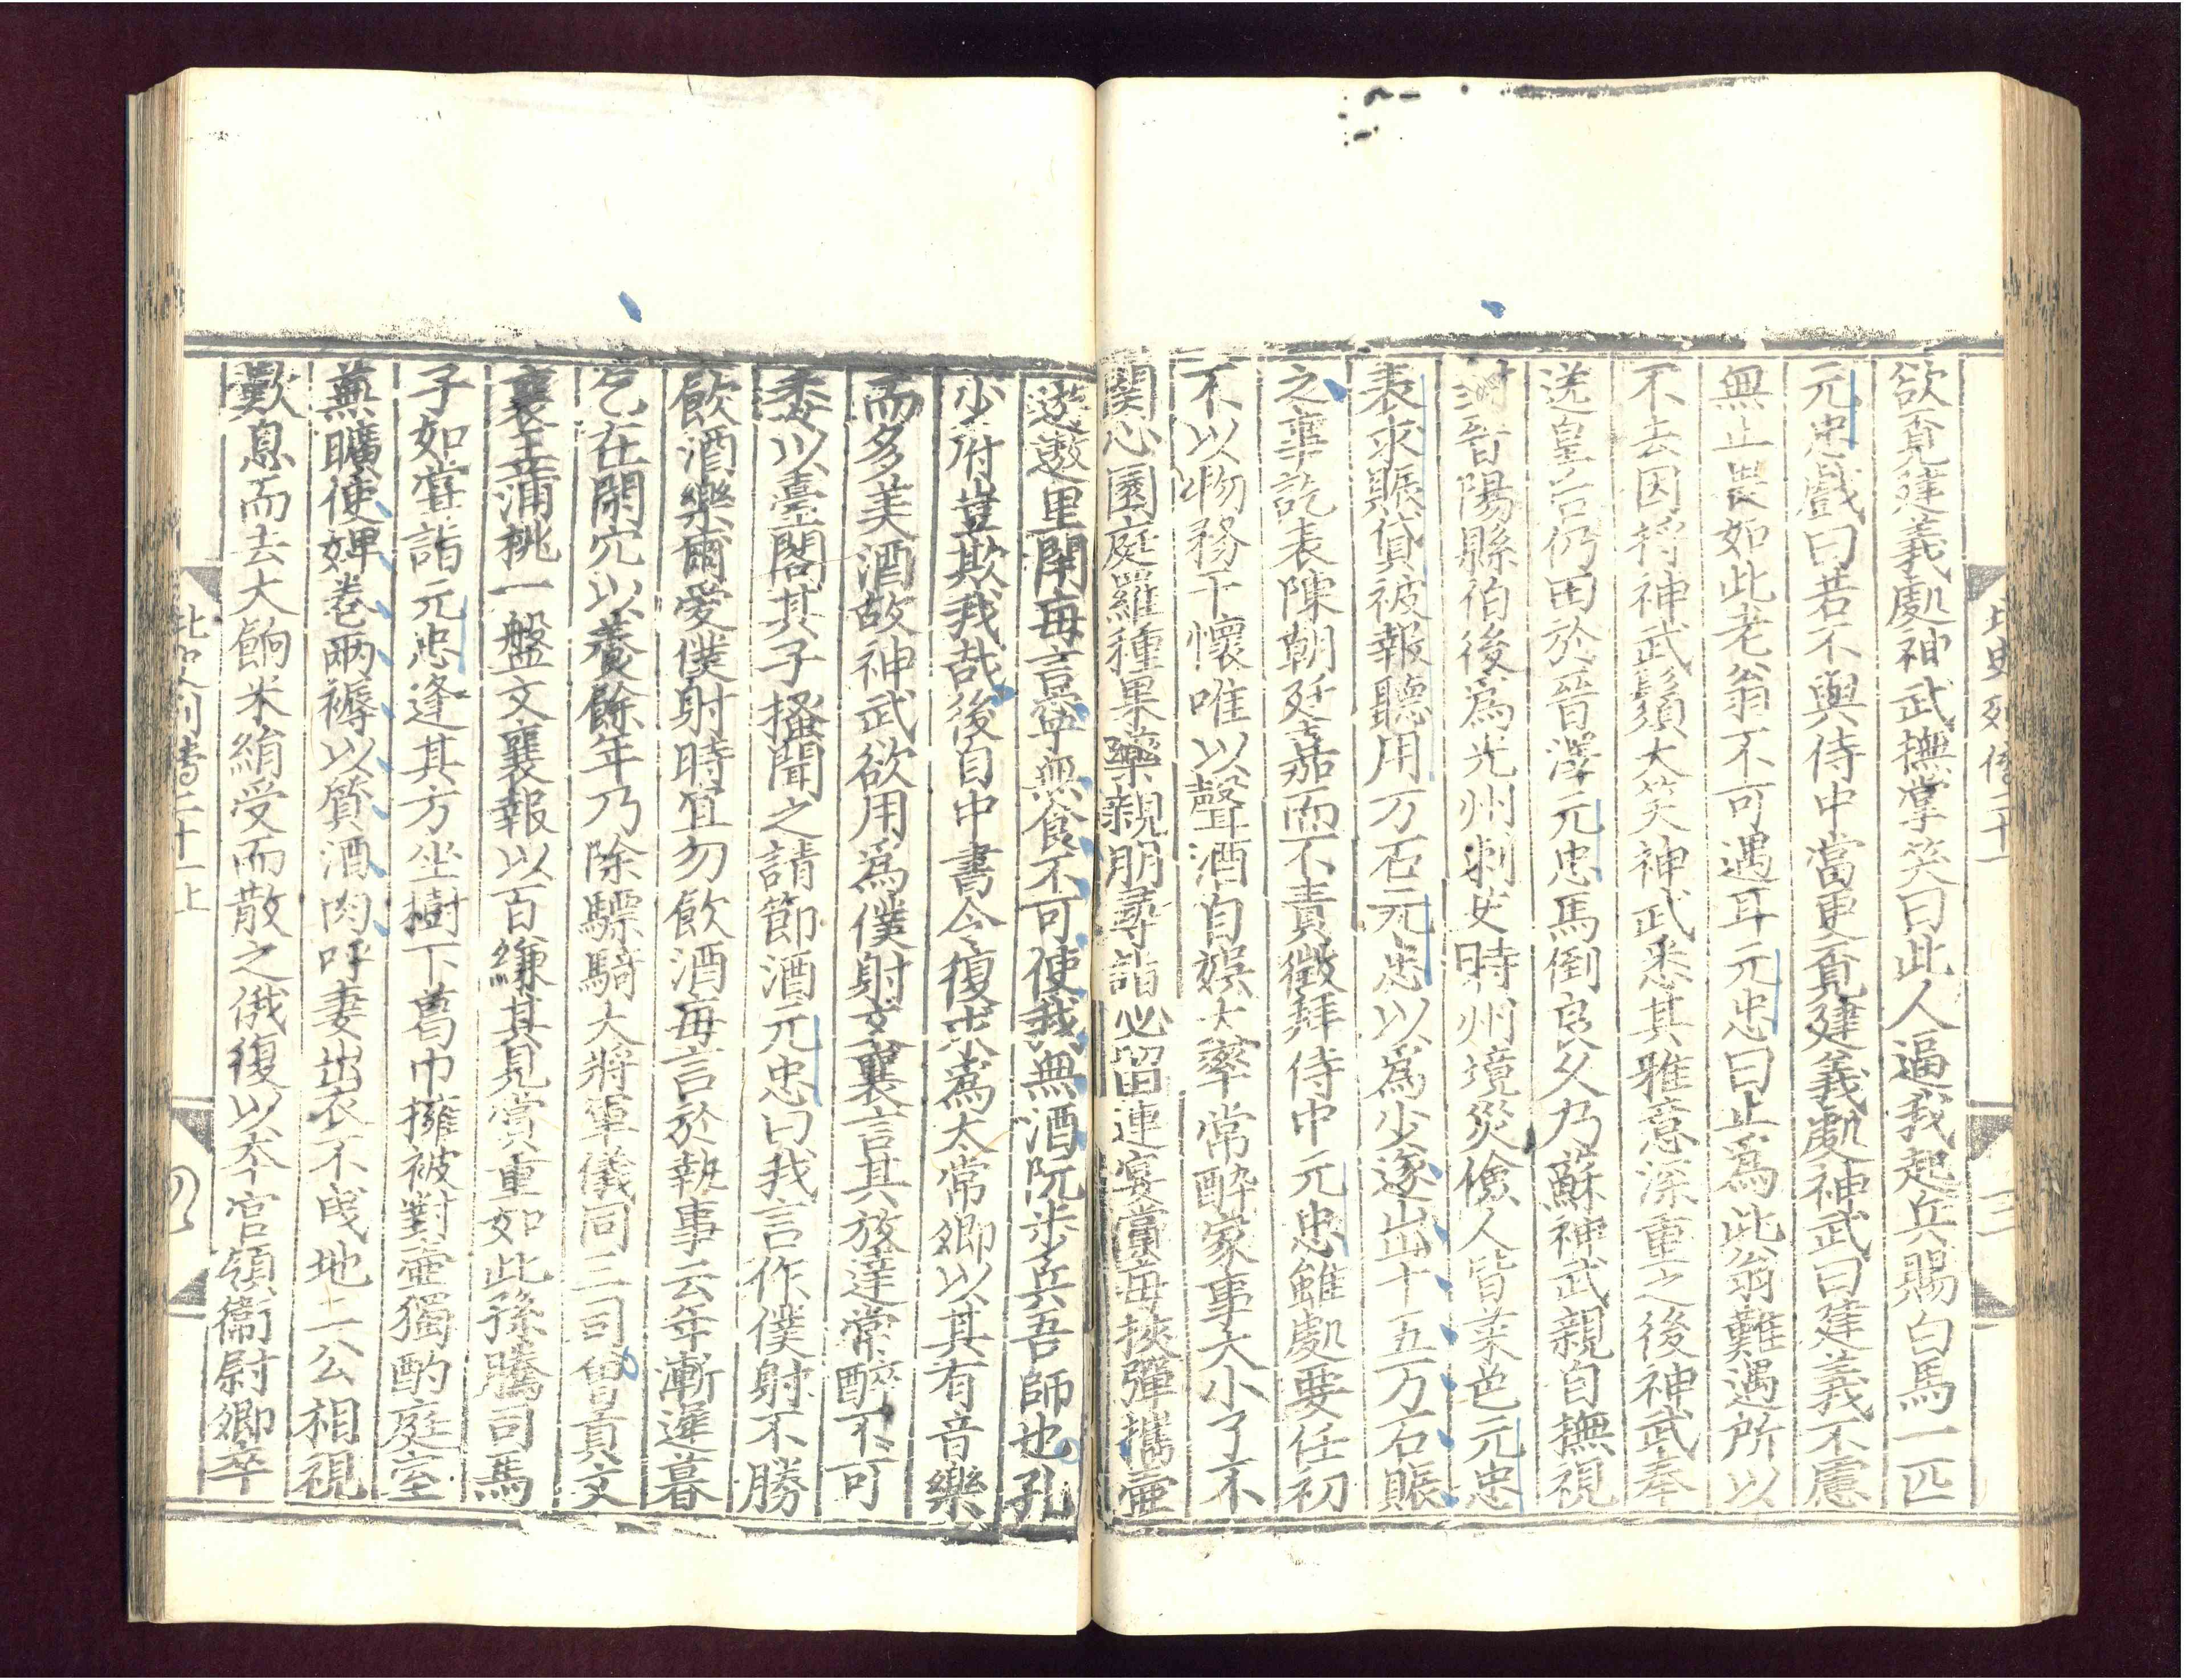 北史列傳二十一
三
欲覓建義處神武撫掌笑曰此人逼我起兵賜白馬一匹
元忠戲曰若不與侍中當更覓建義處神武曰建義不慮
無止畏如此老翁不可遇耳元忠曰止爲此翁難遇所以
不去因捋神武鬚大笑神武悉其雅意深重之後神武奉
送皇后仍田於晉澤元忠馬倒良久乃蘇神武親自撫視
封晉陽縣伯後爲光州刺史時州境災儉人皆菜色元忠
表求賑貸被報聽用万石元忠以爲少遂出十五万石賑
之事訖表陳朝廷嘉而不責徵拜侍中元忠雖處要任初
不以物務干懷唯以聲酒自娛大率常醉家事大小了不
關心園庭羅種果藥親朋尋詣必留連宴賞每挾彈攜壺
遨遊里閈每言寧無食不可使我無酒阮步兵吾師也孔
少府豈欺我哉後自中書令復求爲太常卿以其有音樂
而多美酒故神武欲用爲僕射文襄言其放達常醉不可
委以臺閣其子搔聞之請節酒元忠曰我言作僕射不勝
飲酒樂爾愛僕射時宜勿飲酒每言於執事云年漸遲暮
乞在閑冗以養餘年乃除驃騎大將軍儀同三司曾貢文
襄王蒲桃一盤文襄報以百縑其見賞重如此孫騰司馬
子如嘗詣元忠逢其方坐樹下葛巾擁被對壺獨酌庭室
蕪曠使婢卷兩褥以質酒肉呼妻出衣不曳地二公相視
歎息而去大餉米絹受而散之俄復以本官領衞尉卿卒
北史列傳二十一上